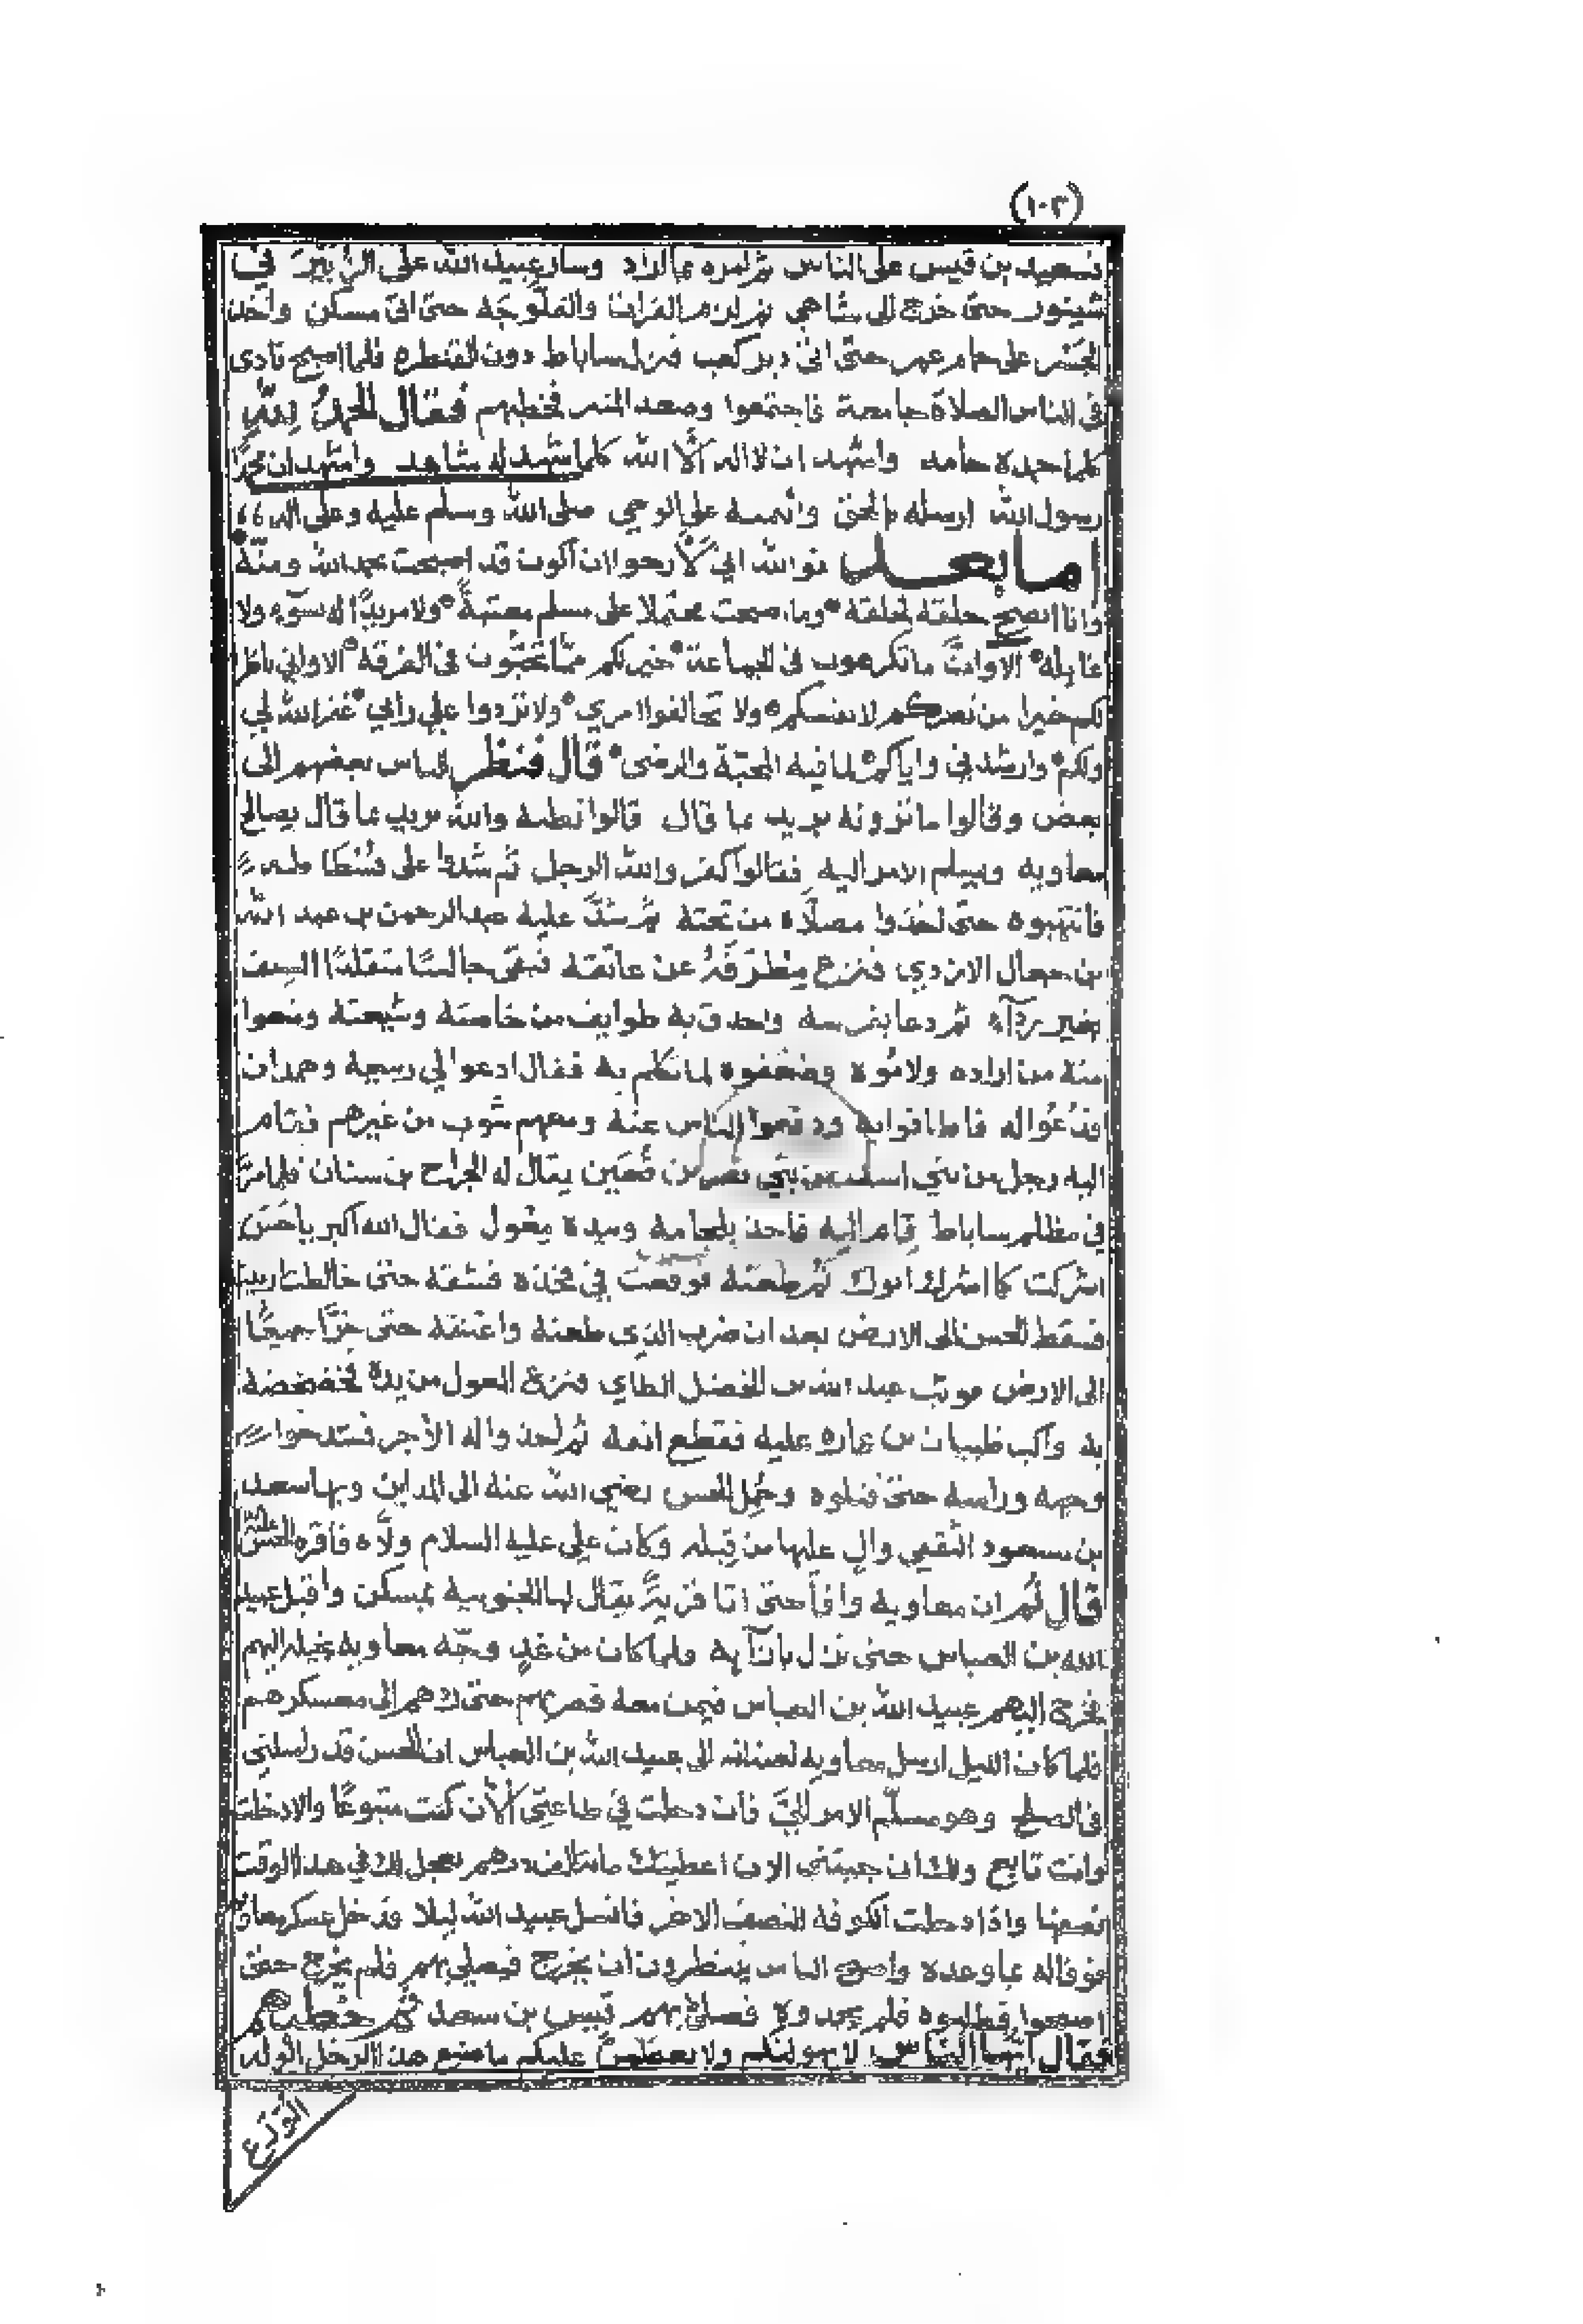 (١٠٣)
فسعيد بن قيس على الناس ثم امره بما اراد وسار عبيد الله على
شينور حتى خرج الى شاهي ثم لزم الفرات والفلوجة حتى اتى مسكن واخذ
على حمام عمر حتى اتى دير كعب فنزل ساباط دون القنطرة فلما اصبح نادى
في الناس الصلاة جامعة فاجتمعوا وصعد المنبر فخطبهم فقال الحمد لله
كلما حمده حامد واشهد ان لا اله الا الله كلما شهد له شاهد واشهد ان محمدًا
رسول الله ارسله بالحق وائتمنه على الوحي صلى الله وسلم عليه وعلى اله
اما بعد فو الله اني لارجوا ان اكون قد اصبحت بحمد الله ومنه
وانا انصح خلقه لخلقه وما اصبحت محتملا على مسلم ضغينة ولا مريدًا له بسوء ولا
غايلة الا وان ما تكرهون في الجماعة خير لكم مما تحبون في الفرقة الا واني ناظر
لكم خيرا من نظركم لانفسكم ولا تخالفوا امري ولا تردوا علي رأيي غفر الله لي
ولكم وارشدني واياكم لما فيه المحبة والرضى قال فنظر الناس بعضهم الى
بعض وقالوا ما ترونه يريد بما قال قالوا نظنه والله يريد بما قال يصالح
معاويه ويسلم الامر اليه فقالوا كفر والله الرجل ثم شدوا على فسطاطه
فانتهبوه حتى اخذوا مصلاه من تحته ثم شد عليه عبد الرحمن بن عبد الله
بن جعال الازدي فنزع مطرفه عن عاتقه فبقى جالسًا متقلدًا السيف
بغير ردآء ثم دعا بفرسه واحدق به طوايف من خاصته وشيعته ومنعوا
منه من اراده ولاموه وضعفوه لما تكلم به فقال ادعوا لي ربيعة وهمدان
فدعوا له فاطافوا به ودفعوا الناس عنه ومعهم شوب من غيرهم فقام
اليه رجل من بني اسد من بني نصر بن قعين يقال له الجراح بن سنان فلما مر
في مظلم ساباط قام اليه فاخذ بلجامه وبيده مغول فقال الله اكبر يا حسن
اشركت كما اشرك ابوك ثم طعنه فوقعت في فخذه فشقه حتى خالطت اربيته
فسقط الحسن الى الارض بعد ان ضرب الذي طعنه واعتنقه حتى خرا جميعًا
الى الارض فوثب عبد الله بن الفضل الطاي فنزع المعول من يده فخضخضه
به واكب ظبيان بن عماره عليه فقطع انفه ثم اخذوا له الاجر فشدخوا
وجهه وراسه حتى قتلوه وحمل الحسن رضي الله عنه الى المداين وبها سعد
بن مسعود الثقفي وال عليها من قبله وكان علي عليه السلام ولاه فاقره الحسن
قال ثم ان معاوية وافا حتى اتا قرية يقال لها الحبوبيه بمسكن واقبل عبيد
الله بن العباس حتى نزل بازآيه ولما كان من غد وجه معاويه بخيله اليهم
فخرج اليهم عبيد الله بن العباس فيمن معه فضربهم حتى ردهم الى معسكرهم
فلما كان الليل ارسل معاويه الى عبيد الله بن العباس ان الحسن قد راسلني
في الصلح وهو مسلم الامر الي فان دخلت في طاعتي الان كنت متبوعًا والا دخلت
وانت تابع ولك ان جيتني الان اعطيتك ما الف درهم نعجل لك في هذا الوقت
نصفها واذا دخلت الكوفه النصف الاخر فانسل عبيد الله ليلا ودخل عسكر معاوية
فوفا له بما وعده واصبح الناس ينتظرون ان يخرج فيصلي بهم فلم يخرج حتى
اصبحوا فطلبوه فلم يجدوه فصلى بهم قيس بن سعد ثم خطبهم
فقال ايها الناس لا يهولنكم ولا يعظمن عليكم ما صنع هذا الرجل الوله
الورع